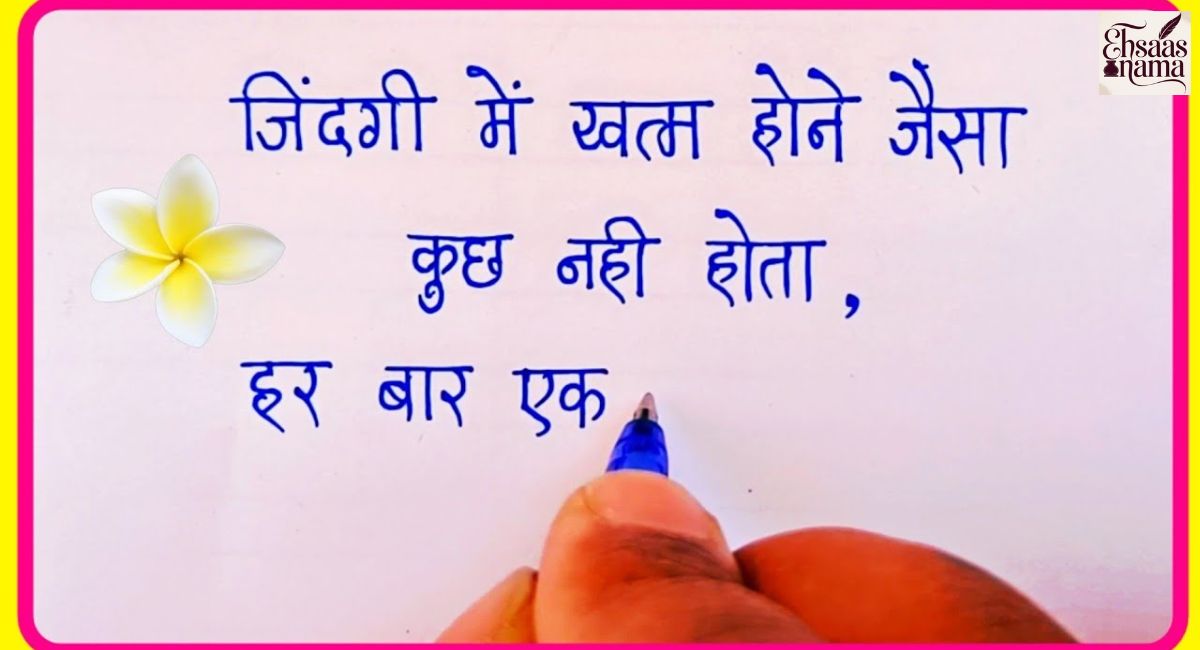 Ehsaas
nama
जिंदगी में खत्म होने जैसा
कुछ नही होता,
हर बार एक